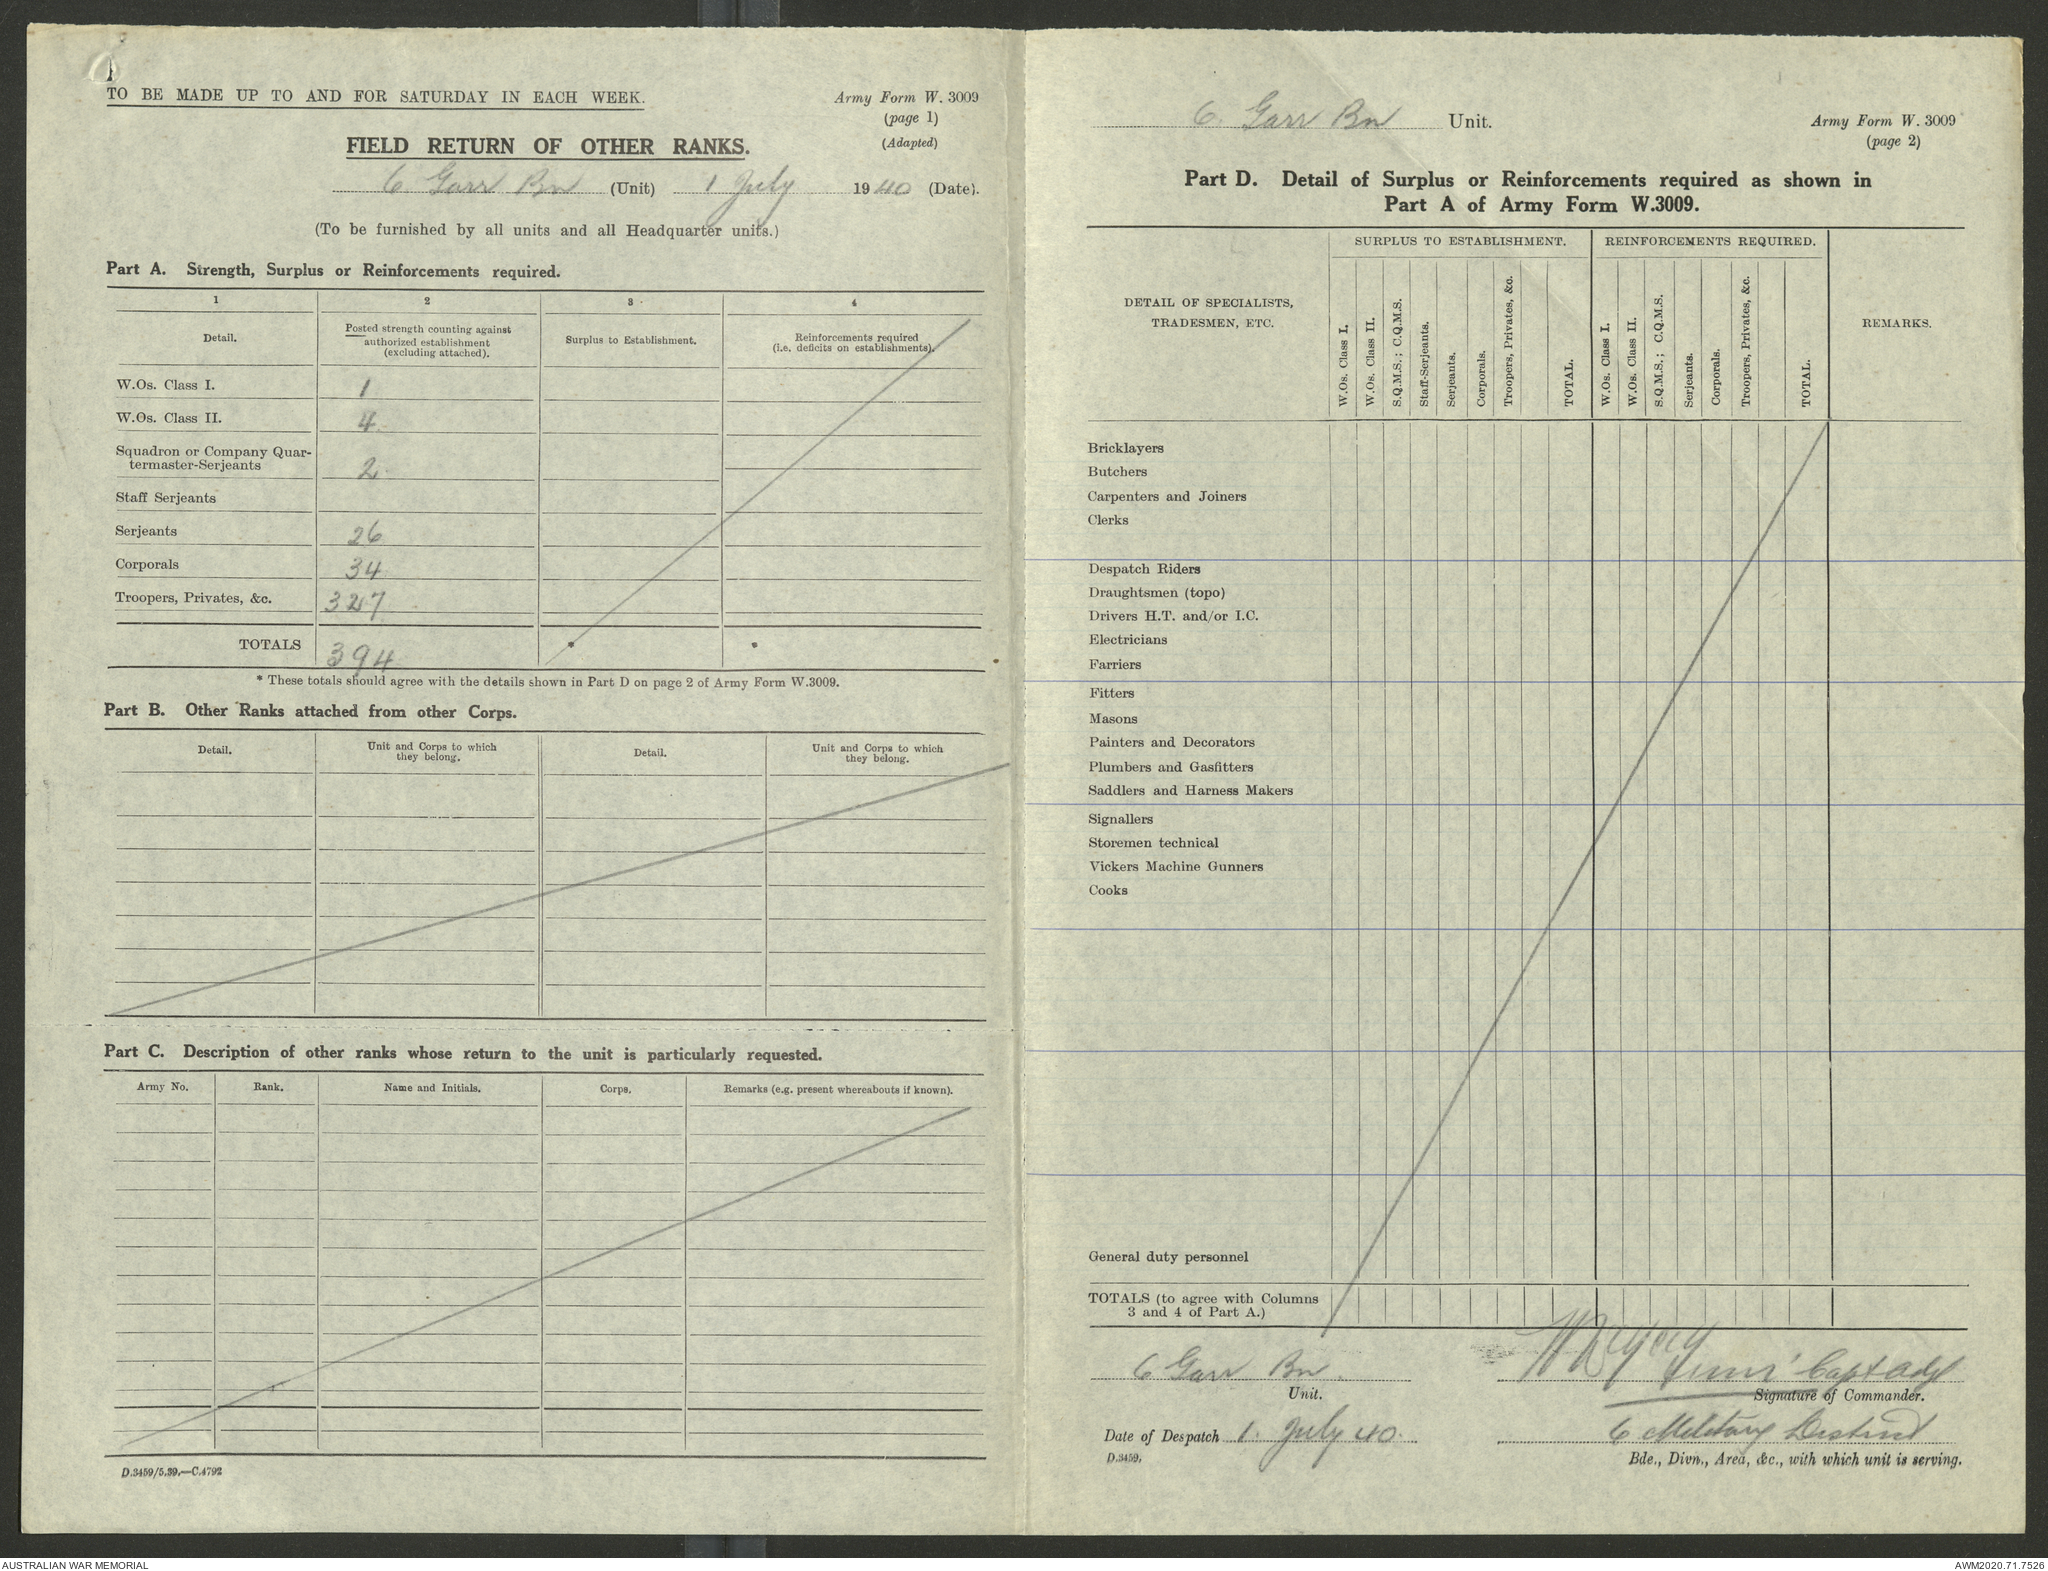 TO BE MADE UP TO AND FOR SATURDAY IN EACH WEEK.
Army Form W. 3009
(page 1)
(Adapted)
FIELD RETURN OF OTHER RANKS.
6 Garr Bn (Unit) 1 July 1940 (Date).
(To be furnished by all units and all Headquarter units.)
Part A. Strength, Surplus or Reinforcements required.
1 2 3 4
Detail.
Posted strength counting against
authorized establishment
(excluding attached).
Surplus to Establishment.
Reinforcements required
(i.e. deficits on establishments).
W.Os. Class I. 1
W.Os. Class II. 4
Squadron or Company Quar-
termaster-Serjeants 2
Staff Serjeants
Serjeants 26
Corporals 34
Troopers, Privates, &c. 327
TOTALS 394 * *
* These totals should agree with the details shown in Part D on page 2 of Army Form W.3009.
Part B. Other Ranks attached from other Corps.
Detail.
Unit and Corps to which
they belong.
Detail.
Unit and Corps to which
they belong.
Part C. Description of other ranks whose return to the unit is particularly requested.
Army No. Rank. Name and Initials. Corps. Remarks (e.g. present whereabouts if known).
D.3459/5.39.—C.4792
6. Garr Bn Unit.
Army Form W. 3009
(page 2)
Part D. Detail of Surplus or Reinforcements required as shown in
Part A of Army Form W.3009.
DETAIL OF SPECIALISTS,
TRADESMEN, ETC.
SURPLUS TO ESTABLISHMENT.
W.Os. Class I.
W.Os. Class II.
S.Q.M.S.; C.Q.M.S.
Staff-Serjeants.
Serjeants.
Corporals.
Troopers, Privates, &c.
TOTAL.
REINFORCEMENTS REQUIRED.
W.Os. Class I.
W.Os. Class II.
S.Q.M.S.; C.Q.M.S.
Serjeants.
Corporals.
Troopers, Privates, &c.
TOTAL.
REMARKS.
Bricklayers
Butchers
Carpenters and Joiners
Clerks
Despatch Riders
Draughtsmen (topo)
Drivers H.T. and/or I.C.
Electricians
Farriers
Fitters
Masons
Painters and Decorators
Plumbers and Gasfitters
Saddlers and Harness Makers
Signallers
Storemen technical
Vickers Machine Gunners
Cooks
General duty personnel
TOTALS (to agree with Columns
3 and 4 of Part A.)
6 Garr Bn.
Unit.
Capt Adj
Signature of Commander.
Date of Despatch 1. July 40.
6 Military District
D.3459.
Bde., Divn., Area, &c., with which unit is serving.
AUSTRALIAN WAR MEMORIAL
AWM2020.71.7526